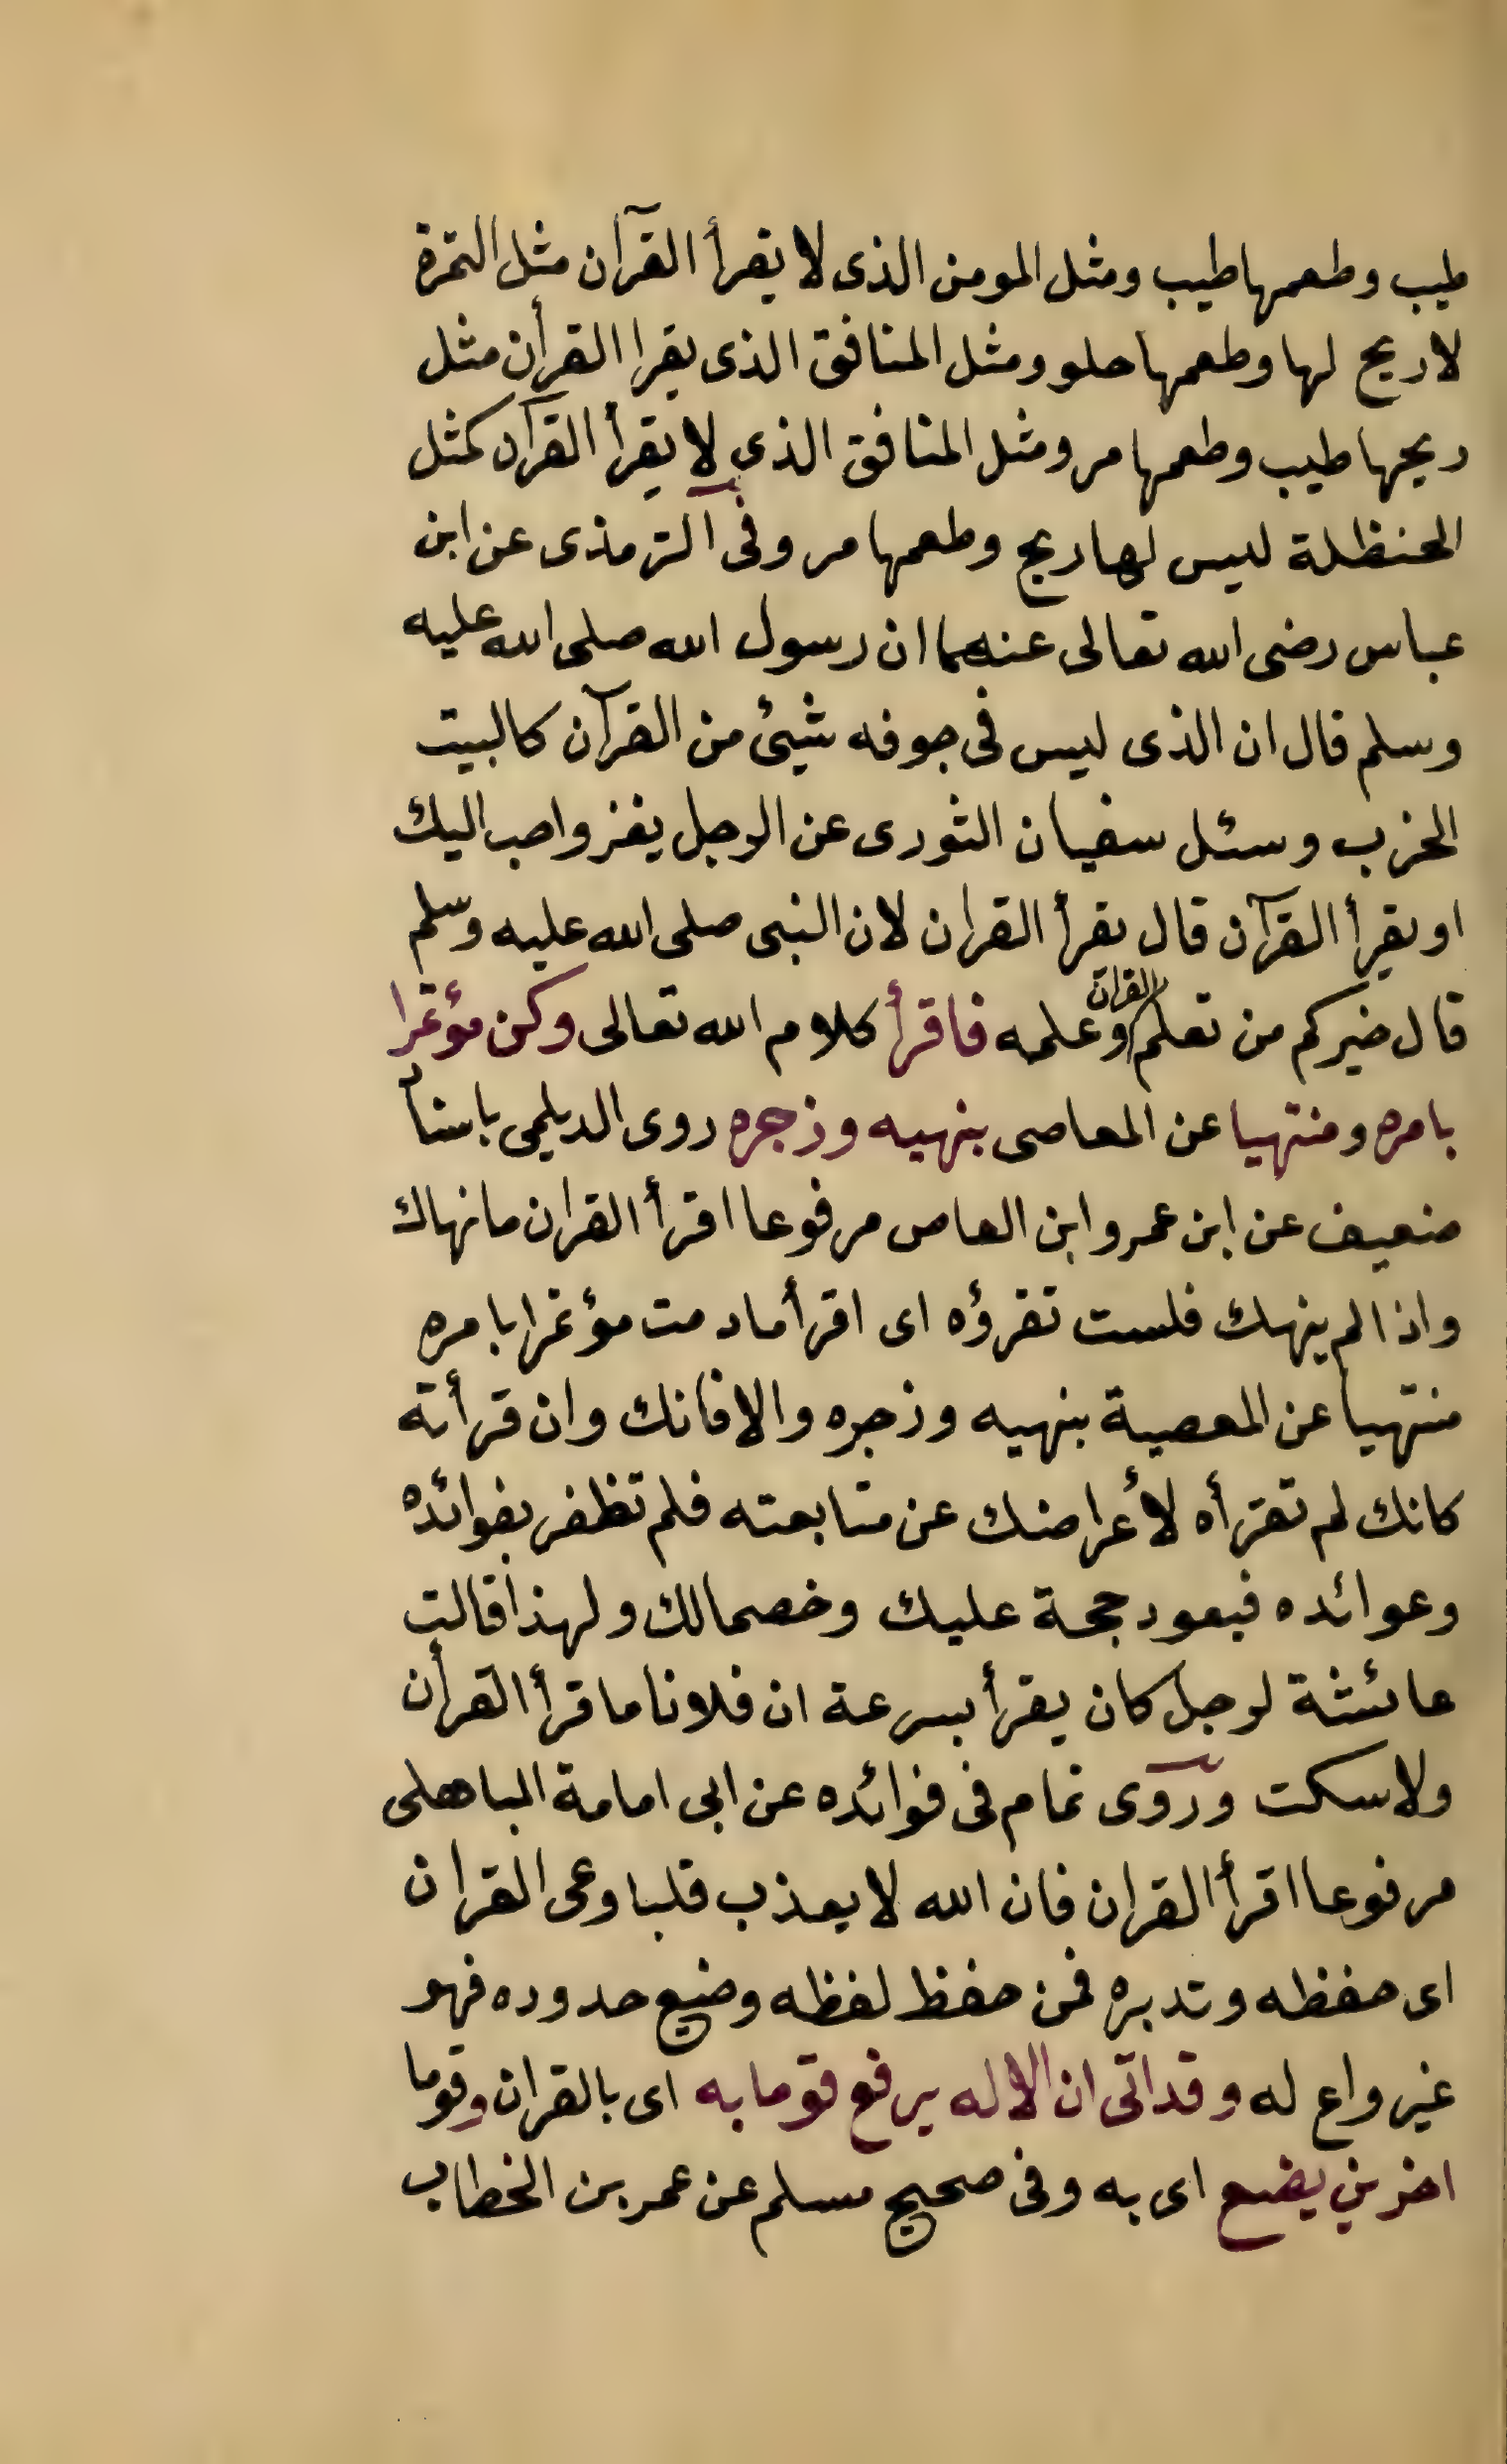 طيب وطعمها طيب ومثل المومن الذى لا يقرأ القرآن مثل التمرة
لا ريح لها وطعمها حلو ومثل المنافق الذى يقرا القرأن مثل
ريحها طيب وطعمها مر ومثل المنافق الذى لا يقرأ القرآن كمثل
الحنظلة ليس لها ريح وطعمها مر وفى الترمذى عن ابن
عباس رضى الله تعالى عنهما ان رسول الله صلى الله عليه
وسلم قال ان الذى ليس فى جوفه شيئ من القرآن كالبيت
الخرب وسئل سفيان الثورى عن الرجل يغزو احب اليك
او يقرأ القرآن قال يقرأ القران لان النبى صلى الله عليه وسلم
قال خيركم من تعلم القران وعلمه فاقرأ كلام الله تعالى وكن مؤتمرا
بامره ومنتهيا عن المعاصى بنهيه وزجره روى الديلمى باسناد
ضعيف عن ابن عمرو ابن العاص مرفوعا اقرأ القران ما نهاك
واذا لم ينهك فلست تقرؤه اى اقرأ مادمت مؤتمرا بامره
منتهيا عن المعصية بنهيه وزجره والا فانك وان قرأته
كانك لم تقرأه لأعراضك عن متابعته فلم تظفر بفوائده
وعوائده فيعود حجة عليك وخصما لك ولهذا قالت
عائشة لرجل كان يقرأ بسرعة ان فلانا ما قرأ القرأن
ولا سكت وروى تمام فى فوائده عن ابى امامة الباهلى
مرفوعا اقرأ القران فان الله لا يعذب قلبا وعى القران
اى حفظه وتدبره فمن حفظ لفظه وضيع حدوده فهو
غير واع له وقد اتى ان الاله يرفع قوما به اى بالقران وقوما
اخرين يضع اى به وفى صحيح مسلم عن عمر بن الخطاب